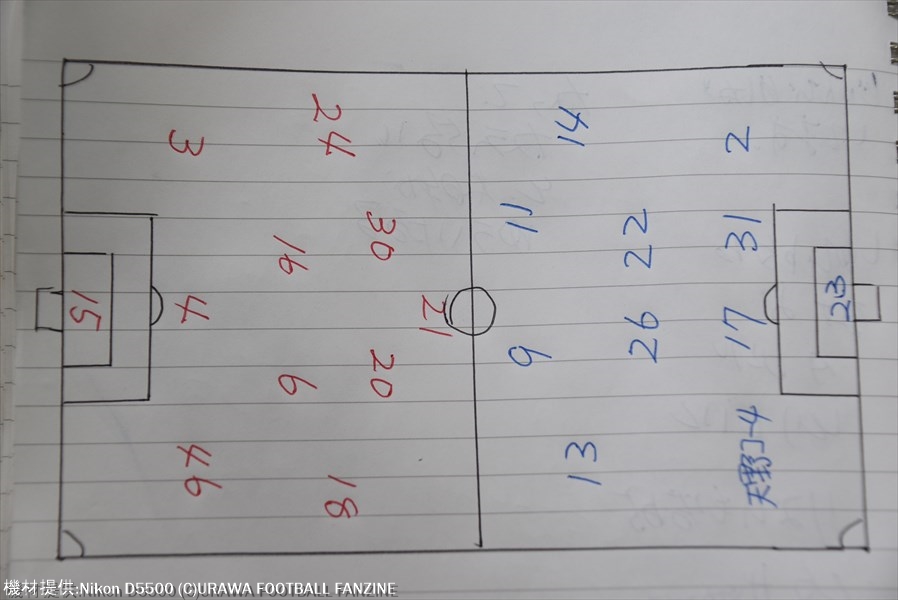 24
3
30
16
4
15
21
20
6
46
18
14
2
11
22
31
23
26
17
9
13
機材提供:Nikon D5500 (C)URAWA FOOTBALL FANZINE